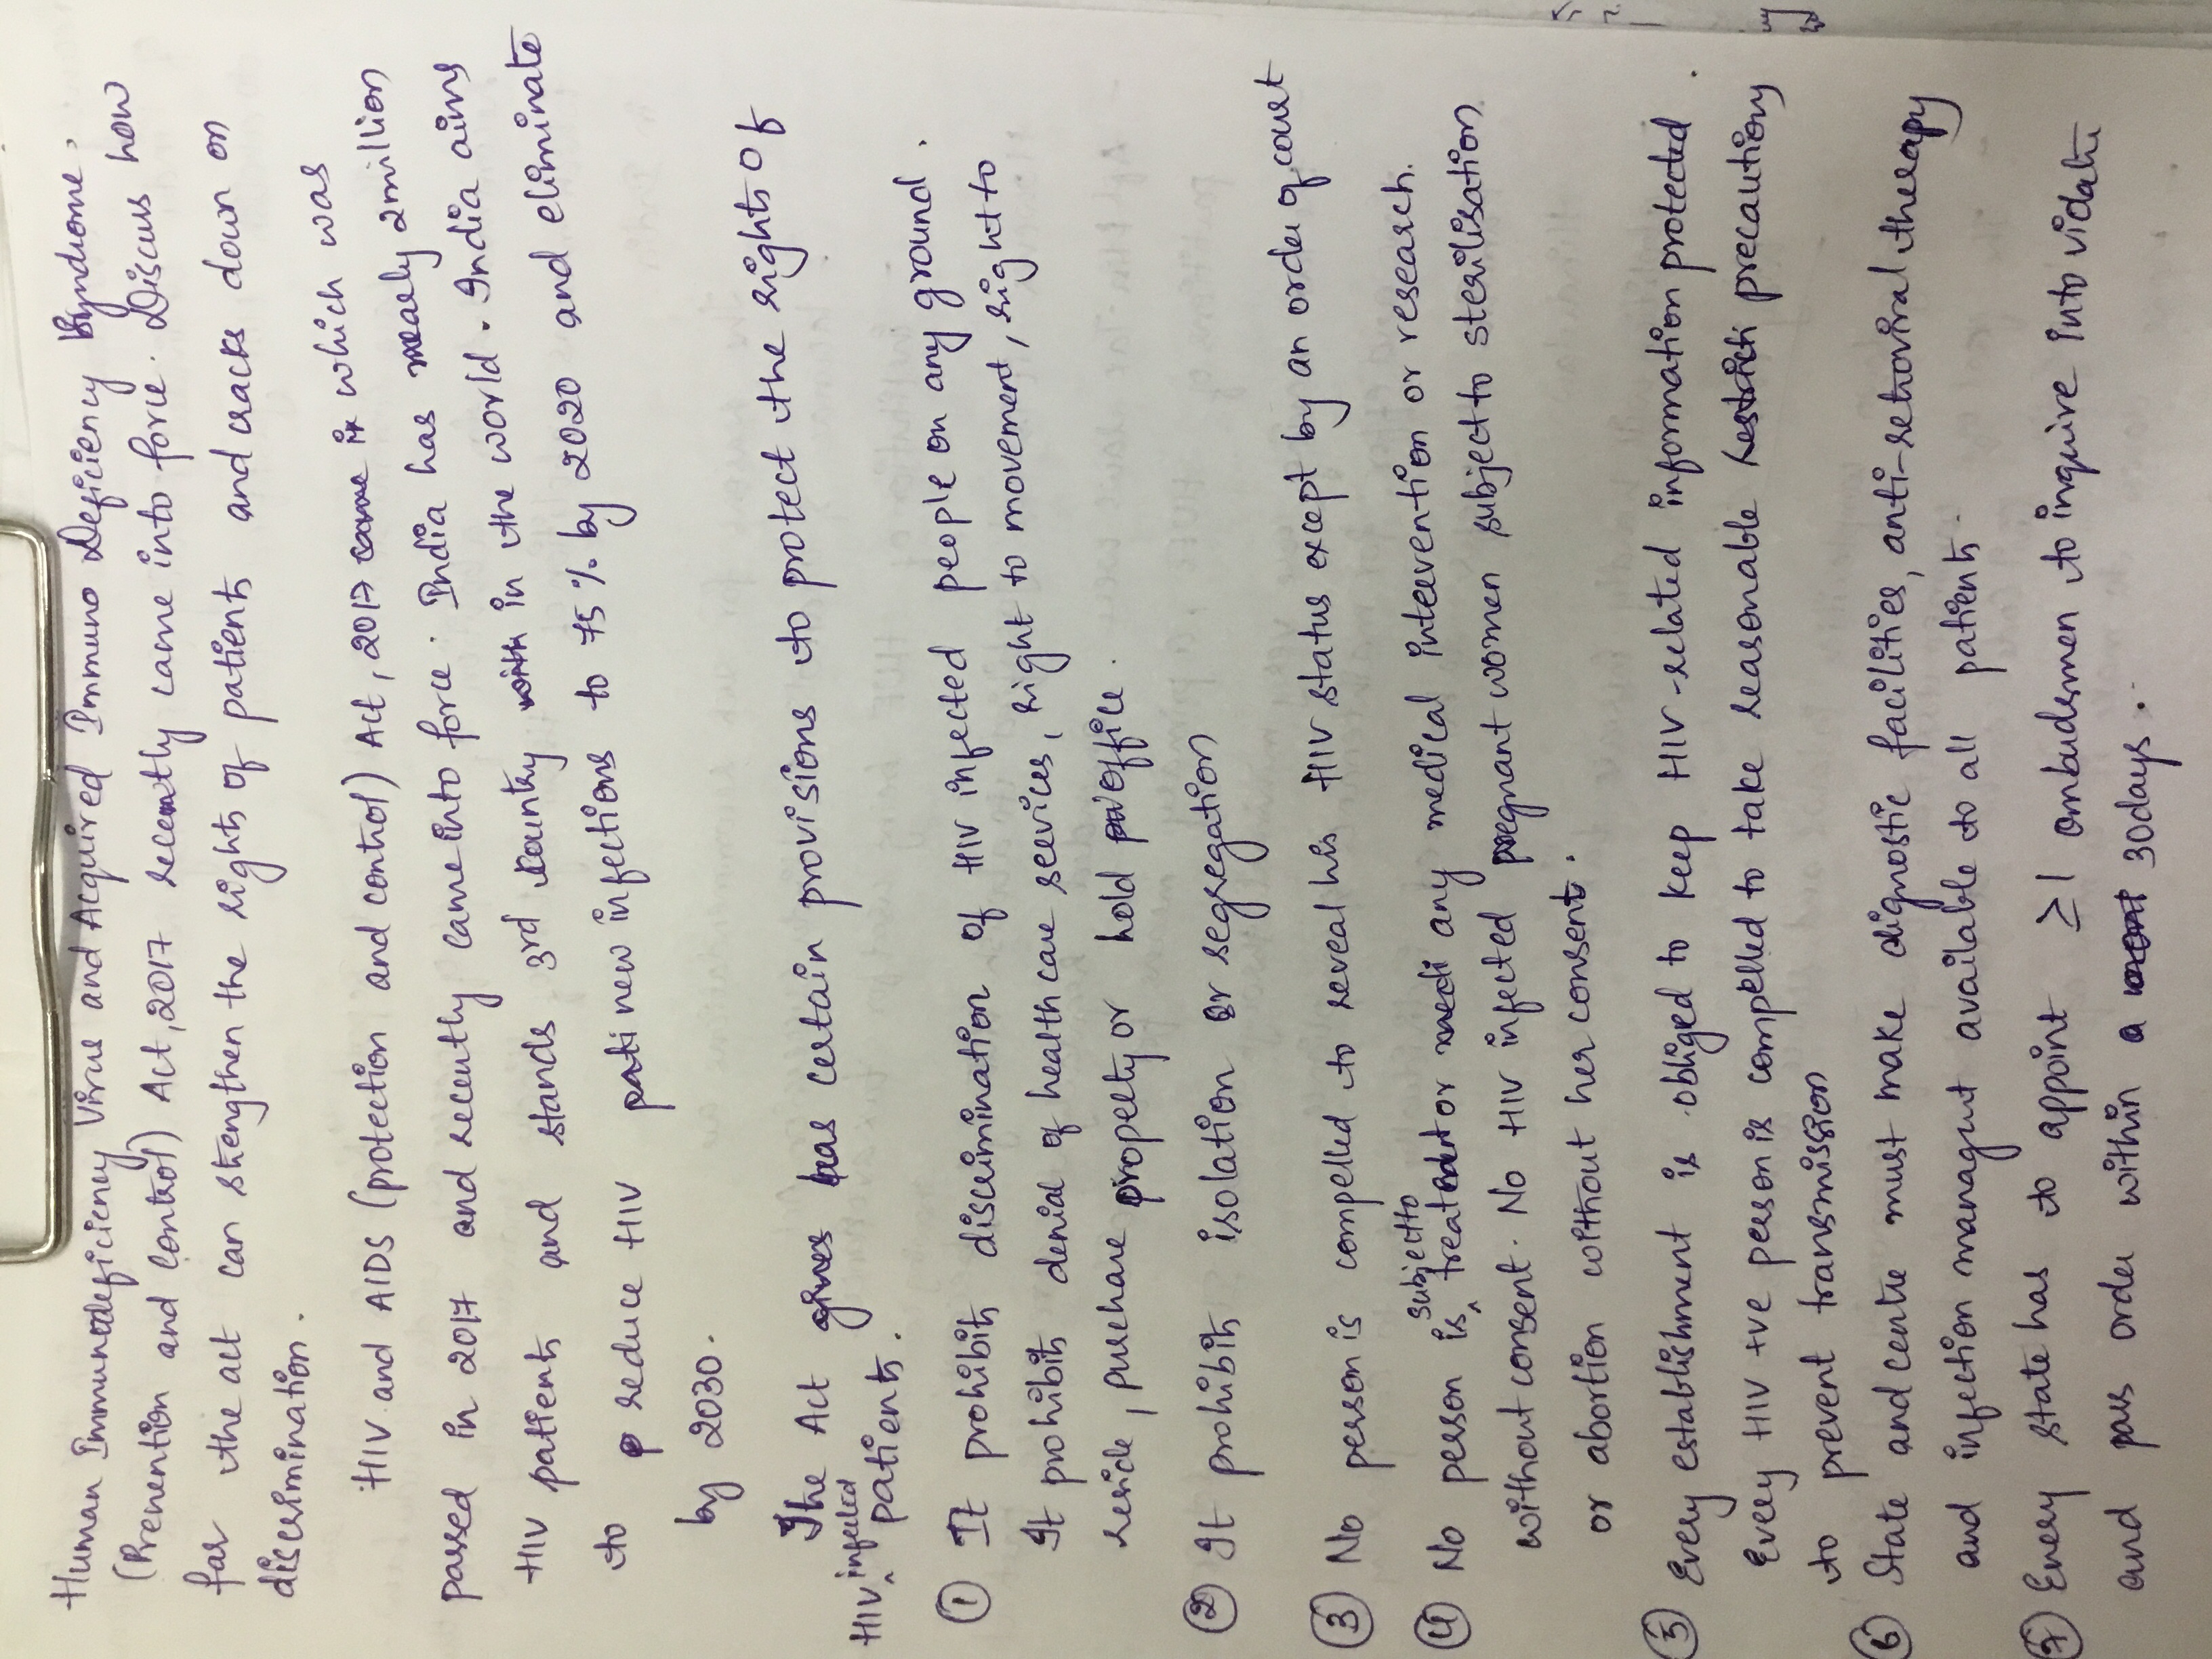 Human Immunodeficiency Virus and Acquired Immuno Deficiency Syndrome
(Prevention and Control) Act, 2017 recently came into force. Discuss how
far the act can strengthen the rights of patients and cracks down on
discrimination.
HIV and AIDS (protection and control) Act, 2017 came it which was
passed in 2017 and recently came into force. India has nearly 2 million
HIV patients and stands 3rd country with in the world. India aims
to reduce HIV pati new infections to 75% by 2020 and eliminate
by 2030.
The Act gives has certain provisions to protect the rights of
HIV infected patients.
① It prohibits discrimination of HIV infected people on any ground.
It prohibits denial of health care services, right to movement, right to
reside, purchase property or hold pu office.
② It prohibits isolation or segregation
③ No person is compelled to reveal his HIV status except by an order of court
④ No person is subject to treat or medi any medical intervention or research.
without consent. No HIV infected pregnant women subject to sterilisation
or abortion without her consent.
⑤ Every establishment is obliged to keep HIV-related information protected.
Every HIV +ve person is compelled to take reasonable precautions
to prevent transmission
⑥ State and centre must make dignostic facilities, anti-retroviral therapy
and infection managmt available to all patients.
⑦ Every state has to appoint ≥1 ombudsmen to inquire into violatn
and pass order within a 30days.